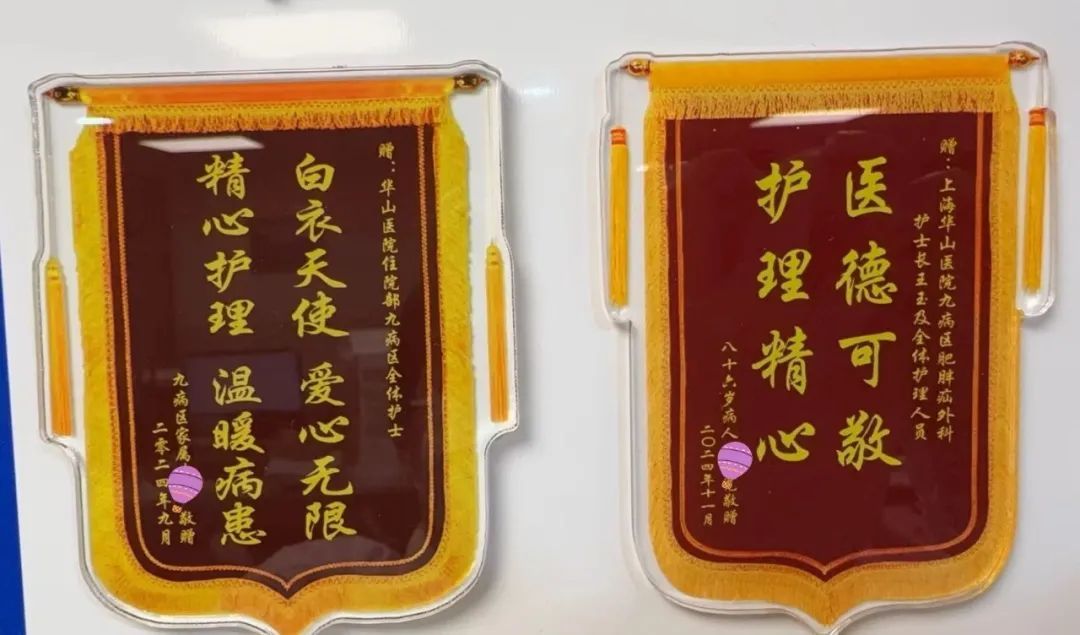 赠：华山医院住院部九病区全体护士
白衣天使 爱心无限
精心护理 温暖病患
九病区家属
敬赠
二零二四年九月
赠：上海华山医院九病区肥胖疝外科
护士长王玉及全体护理人员
医德可敬
护理精心
八十六岁病人
敬赠
二〇二四年十一月